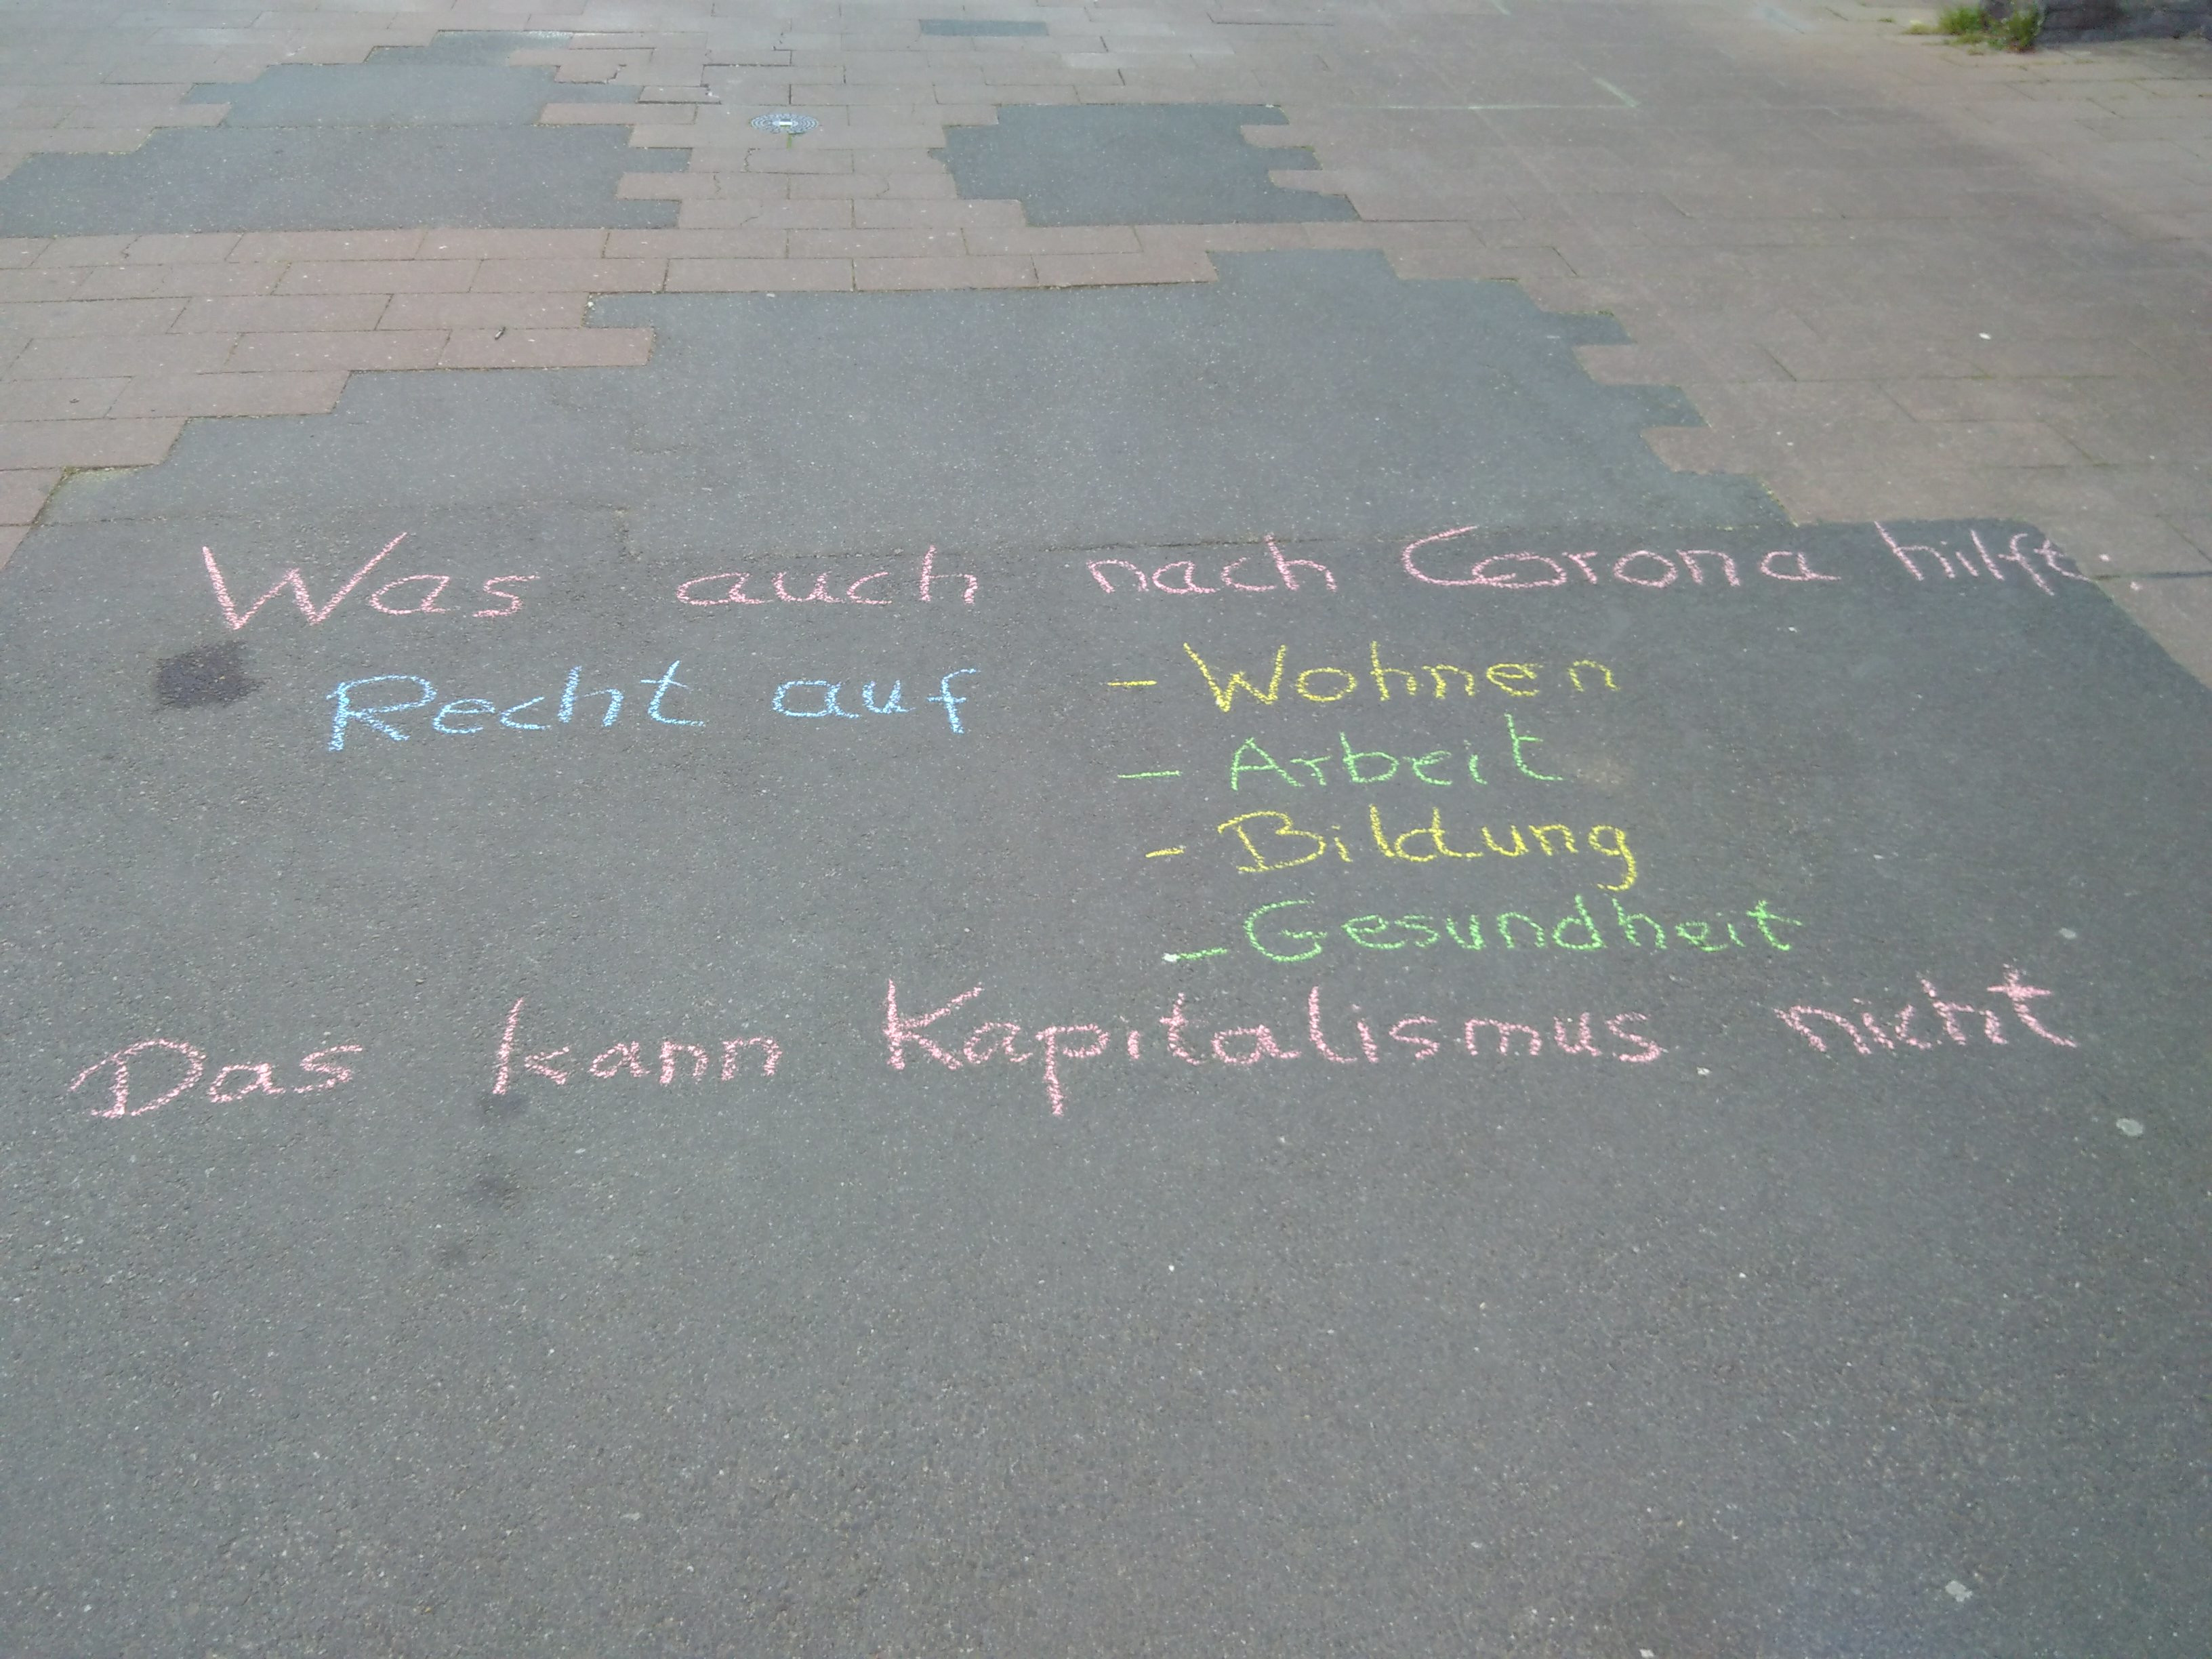 Was auch nach Corona hilft:
Recht auf - Wohnen
- Arbeit
- Bildung
- Gesundheit
Das kann Kapitalismus nicht